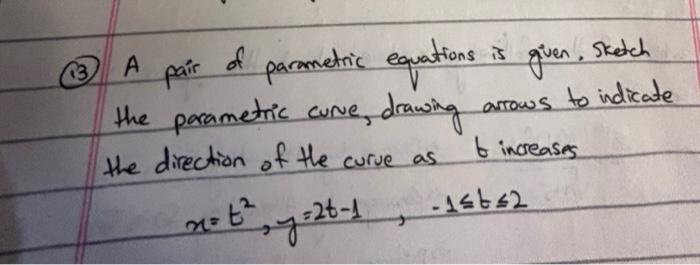 (13) A pair of parametric equations is given. Sketch
the parametric curve, drawing arrows to indicate
the direction of the curve as t increases
x=t², y=2t-1, -1≤t≤2